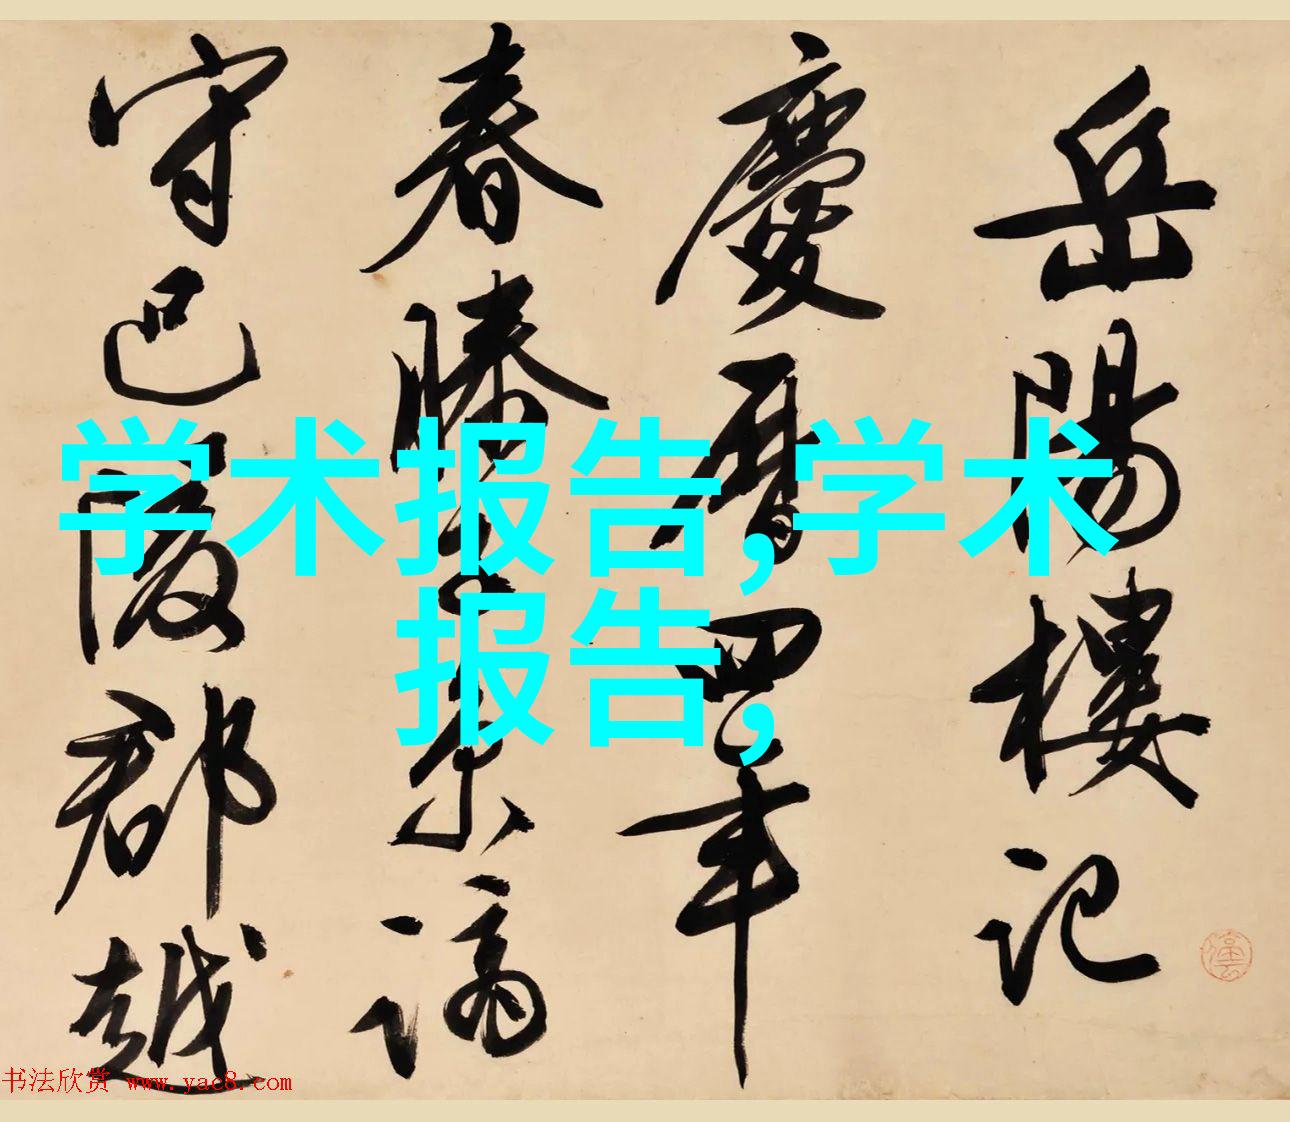 岳陽樓記
慶曆四年
春滕子京謫
守巴陵郡越
学术报告,学术
报告,
书法欣赏 www.yac8.com